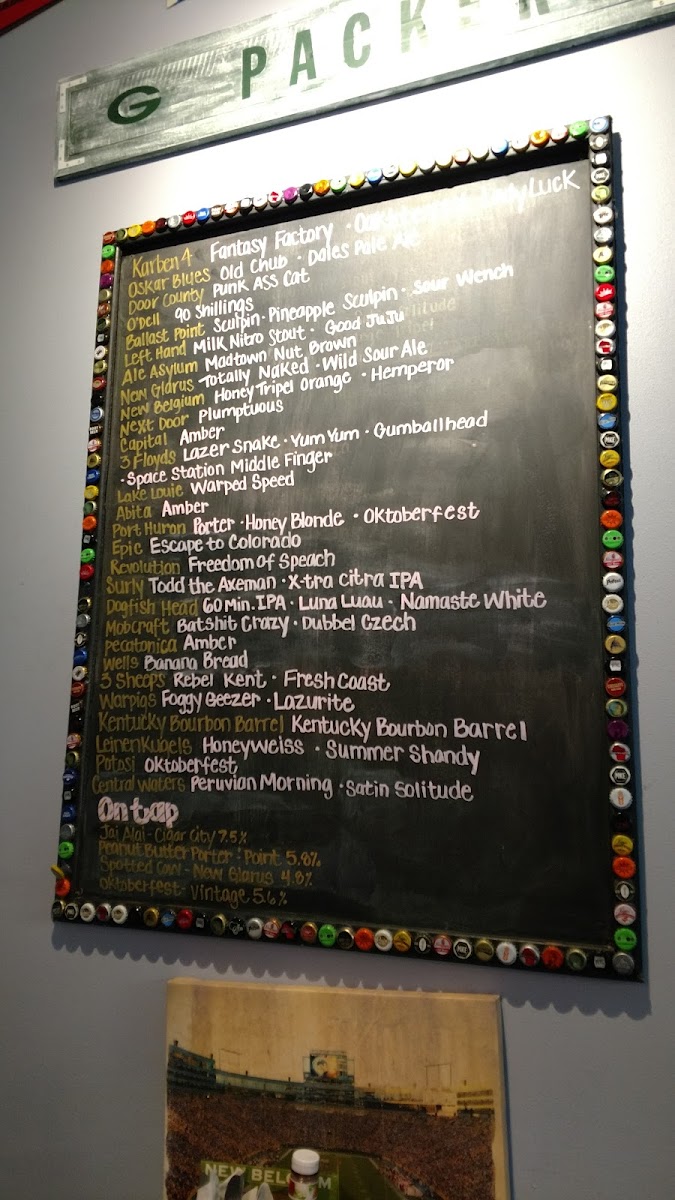 G PACKER
Karben 4 Fantasy Factory · Lady Luck
Oskar Blues Old Chub · Dales Pale Ale
Door County Punk Ass Cat
O'Dell 90 Shillings
Ballast Point Sculpin · Pineapple Sculpin · Sour Wench
Left Hand Milk Nitro Stout · Good JuJu
Ale Asylum Madtown Nut Brown
New Glarus Totally Naked · Wild Sour Ale
New Belgium Honey Tripel Orange · Hemperor
Next Door Plumptuous
Capital Amber
3 Floyds Lazer Snake · Yum Yum · Gumballhead
· Space Station Middle Finger
Lake Louie Warped Speed
Abita Amber
Port Huron Porter · Honey Blonde · Oktoberfest
Epic Escape to Colorado
Revolution Freedom of Speach
Surly Todd the Axeman · X-tra Citra IPA
Dogfish Head 60 Min. IPA · Luna Luau · Namaste White
Mobcraft Batshit Crazy · Dubbel Czech
Pecatonica Amber
Wells Banana Bread
3 Sheeps Rebel Kent · Fresh Coast
Warpigs Foggy Geezer · Lazurite
Kentucky Bourbon Barrel Kentucky Bourbon Barrel
Leinenkugels Honeyweiss · Summer Shandy
Potosi Oktoberfest
Central Waters Peruvian Morning · Satin Solitude
On tap
Jai Alai - Cigar City 7.5%
Peanut Butter Porter - Point 5.8%
Spotted Cow - New Glarus 4.8%
Oktoberfest - Vintage 5.6%
NEW BELGIUM